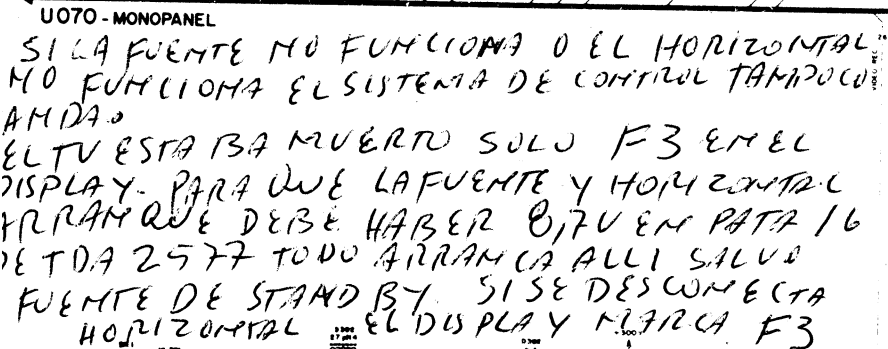 U070 - MONOPANEL
SI LA FUENTE NO FUNCIONA O EL HORIZONTAL
NO FUNCIONA EL SISTEMA DE CONTROL TAMPOCO
ANDA.
EL TV ESTABA MUERTO SOLO F3 EN EL
DISPLAY. PARA QUE LA FUENTE Y HORIZONTAL
ARRANQUE DEBE HABER 8,7V EN PATA 16
DE TDA 2577 TODO ARRANCA ALLI SALVO
FUENTE DE STAND BY. SI SE DESCONECTA
HORIZONTAL EL DISPLAY MARCA F3
VIDEO REC.